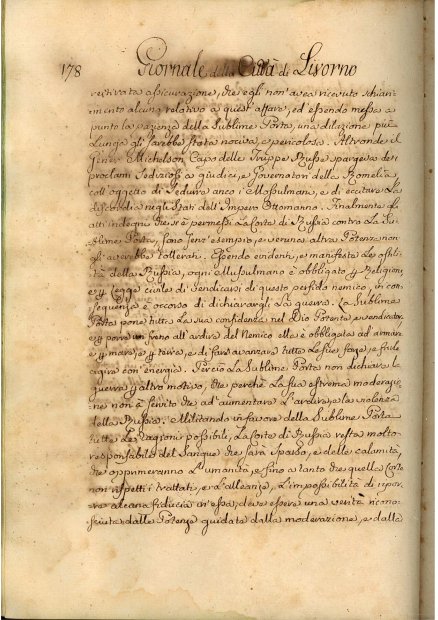 178 Giornale della Città di Livorno
reiterata assicurazione, che egli non avea ricevuto schiari-
mento alcuno relativo a quest'affare, ed essendo messa a
punto la pazienza della Sublime Porta, una dilazione più
lunga gli sarebbe stata nociva, e pericolosa. Altronde il
Gener. Michelson Capo delle Truppe Russe spargeva dei
proclami sediziosi a giudici, e Governatori della Romelia,
coll'oggetto di sedurre anco i Mossulmani, e di eccitare la
discordia negli Stati dell'Impero Ottomanno. Finalmente gli
atti indegni che si è permessi la Corte di Russia contro la Su-
blime Porta, sono senz'esempio, e veruna altra Potenza non
gli avrebbe tollerati. Essendo evidenti, e manifeste le ostili-
tà della Russia, ogni Musulmano è obbligato p Religione,
e p legge civile di vendicarsi di questo perfido nemico, in con-
sequenza è occorso di dichiarargli la guerra. La Sublime
Porta pone tutta la sua confidenza nel Dio Potente, e vendicatore,
e p porre un freno all'ardire del Nemico ella è obbligata ad armare
p mare, e p terra, e di far avanzare tutte le sue forze, e finire
agire con energia. Perciò la Sublime Porta non dichiara la
guerra p altro motivo, che perchè la sua estrema moderazio-
ne non à servito che ad aumentare l'ardire, e la violenza
della Russia. Militando in favore della Sublime Porta
tutte le ragioni possibili, la Corte di Russia resta molto
responsabile del sangue che sarà sparso, e delle calamità,
che opprimeranno l'umanità, e fino a tanto che quella Corte
non rispetti i trattati, e l'alleanza, l'impossibilità di ripor-
re alcuna fiducia in essa, deve essere una verità ricono-
sciuta dalle Potenze guidate dalla moderazione, e dalla